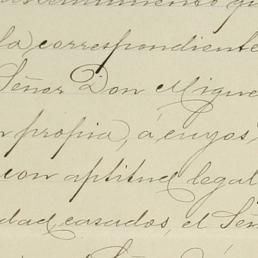 la correspondiente
Señor Don Migue
n propia, á cuyos
con aptitud legal
dad casados, el Señ